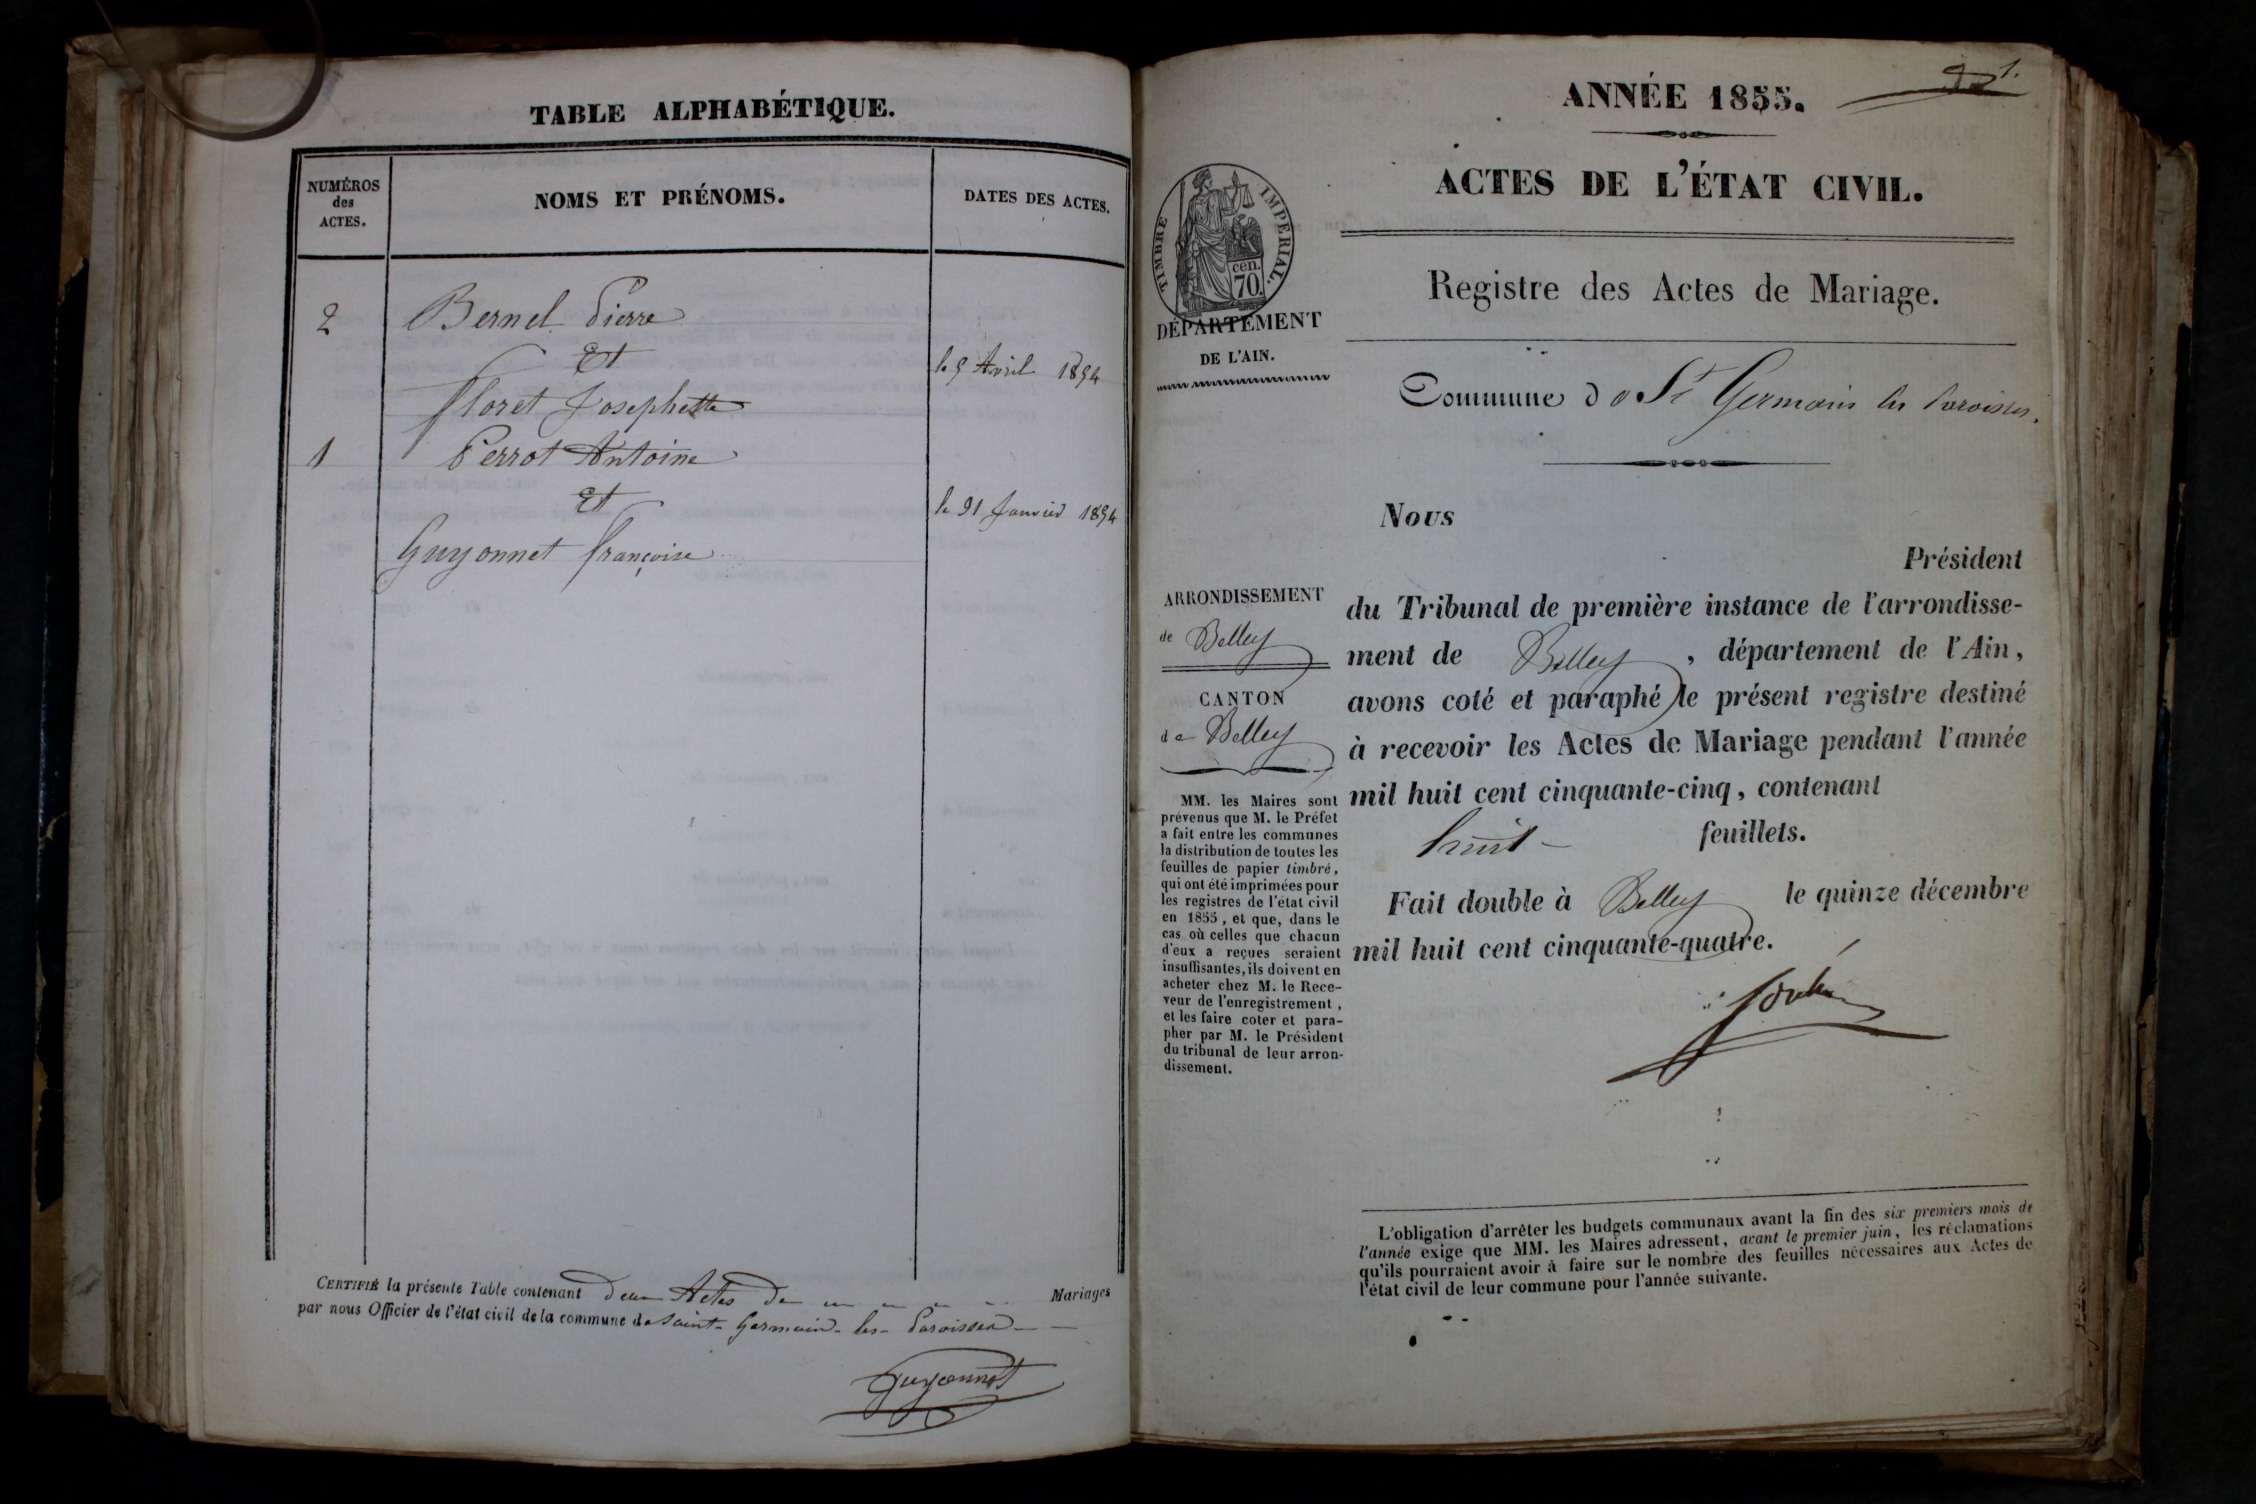 TABLE ALPHABÉTIQUE.
NUMÉROS
des
ACTES.
NOMS ET PRÉNOMS.
DATES DES ACTES.
2
Bernel Pierre
Et
le 5 Avril 1854
Floret Josephette
1
Perrot Antoine
Et
le 31 Janvier 1854
Guyonnet françoise
CERTIFIÉ la présente Table contenant Deux Actes De Mariages
par nous Officier de l'état civil de la commune de Saint-Germain-les-Paroisses
Guyonnet
1.
ANNÉE 1855.
ACTES DE L'ÉTAT CIVIL.
TIMBRE IMPÉRIAL.
cen.
70.
Registre des Actes de Mariage.
DÉPARTEMENT
DE L'AIN.
Commune de St Germain les Paroisses.
Nous
Président
du Tribunal de première instance de l'arrondisse-
ment de Belley, département de l'Ain,
avons coté et paraphé le présent registre destiné
à recevoir les Actes de Mariage pendant l'année
mil huit cent cinquante-cinq, contenant
huit feuillets.
Fait double à Belley le quinze décembre
mil huit cent cinquante-quatre.
ARRONDISSEMENT
de Belley
CANTON
de Belley
MM. les Maires sont
prévenus que M. le Préfet
a fait entre les communes
la distribution de toutes les
feuilles de papier timbré,
qui ont été imprimées pour
les registres de l'état civil
en 1855, et que, dans le
cas où celles que chacun
d'eux a reçues seraient
insuffisantes, ils doivent en
acheter chez M. le Rece-
veur de l'enregistrement,
et les faire coter et para-
pher par M. le Président
du tribunal de leur arron-
dissement.
L'obligation d'arrêter les budgets communaux avant la fin des six premiers mois de
l'année exige que MM. les Maires adressent, avant le premier juin, les réclamations
qu'ils pourraient avoir à faire sur le nombre des feuilles nécessaires aux Actes de
l'état civil de leur commune pour l'année suivante.